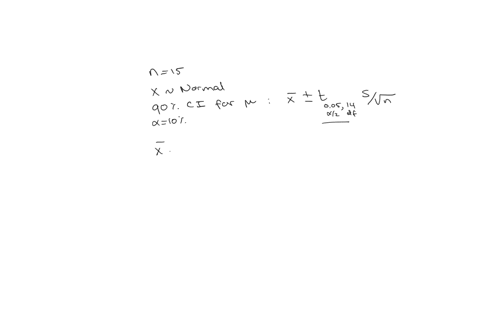 n=15
X ~ Normal
90% CI for μ : x̄ ± t 0.05, 14 S/√n
α=10% α/2 df
x̄